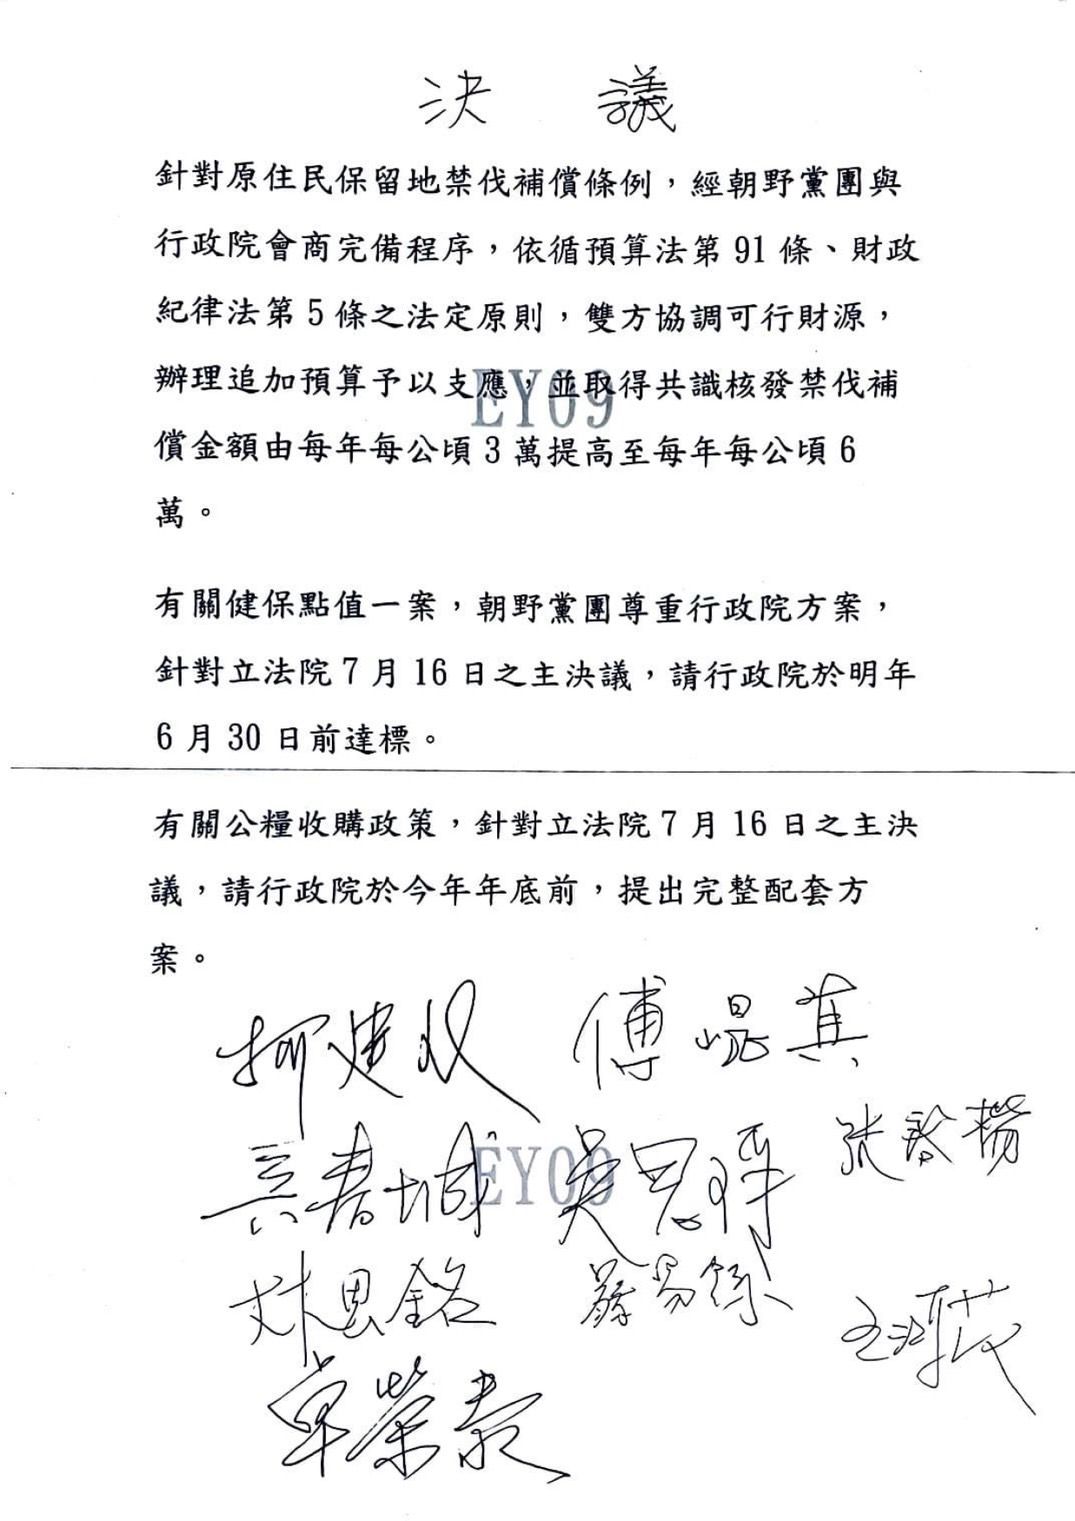 決議
針對原住民保留地禁伐補償條例，經朝野黨團與
行政院會商完備程序，依循預算法第91條、財政
紀律法第5條之法定原則，雙方協調可行財源，
辦理追加預算予以支應，並取得共識核發禁伐補
EY09
償金額由每年每公頃3萬提高至每年每公頃6
萬。
有關健保點值一案，朝野黨團尊重行政院方案，
針對立法院7月16日之主決議，請行政院於明年
6月30日前達標。
有關公糧收購政策，針對立法院7月16日之主決
議，請行政院於今年年底前，提出完整配套方
案。
傅崐萁
EY09
吳思瑤
張啓楷
林思銘
卓榮泰